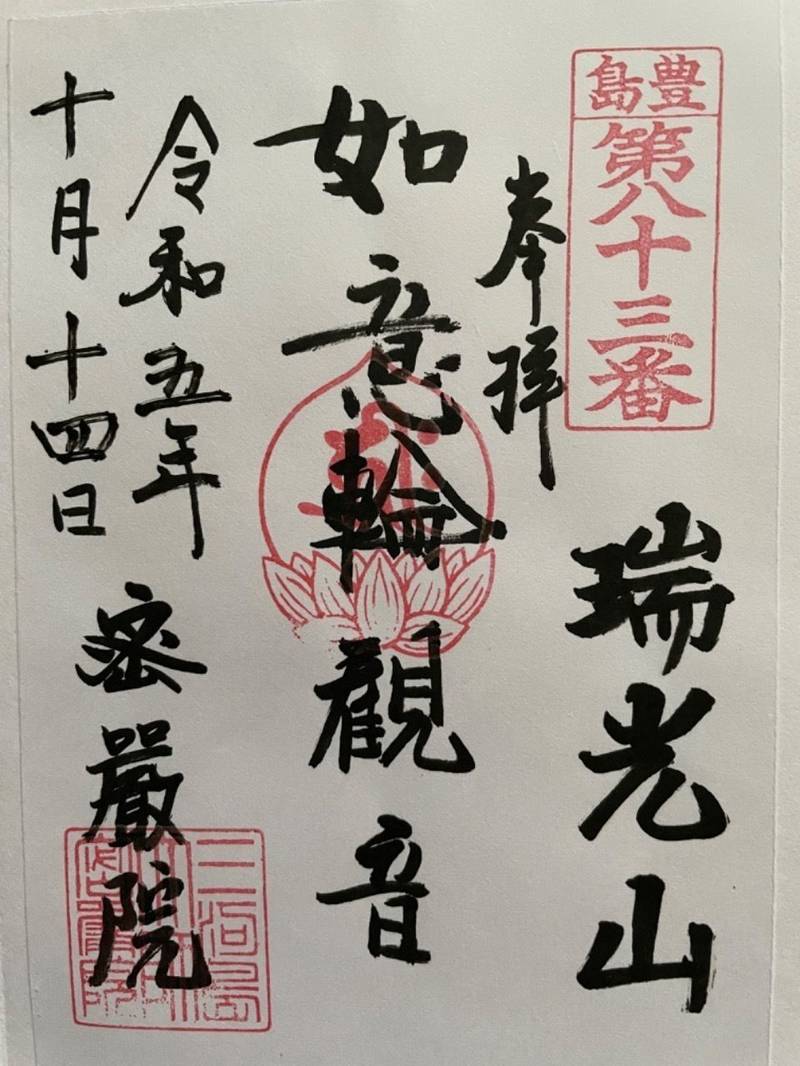 豊島
第八十三番
瑞光山
奉拝
如意輪觀音
令和五年
十月十四日
密嚴院